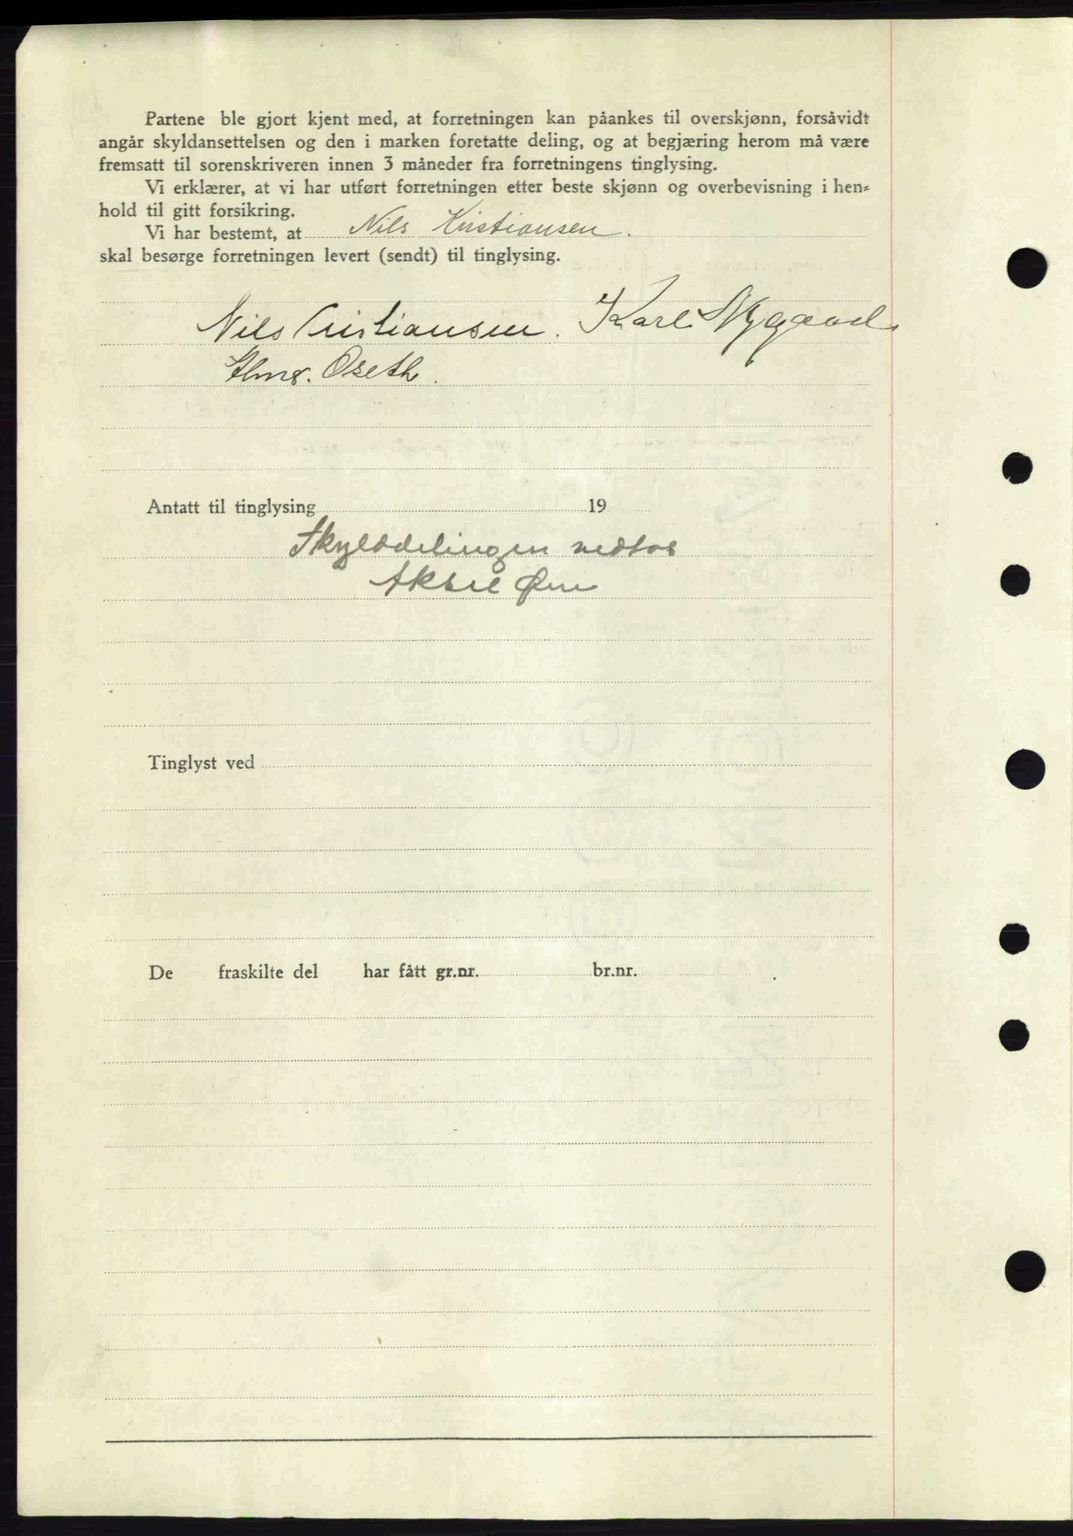 Partene ble gjort kjent med, at forretningen kan påankes til overskjønn, forsåvidt
angår skyldansettelsen og den i marken foretatte deling, og at begjæring herom må være
fremsatt til sorenskriveren innen 3 måneder fra forretningens tinglysing.
Vi erklærer, at vi har utført forretningen etter beste skjønn og overbevisning i hen-
hold til gitt forsikring.
Vi har bestemt, at Nils Kristiansen.
skal besørge forretningen levert (sendt) til tinglysing.
Nils Cristiansen. Karl Nygaard
Oseth.
Antatt til tinglysing 19
Skylddelingen vedtas
Aksel
Tinglyst ved
De fraskilte del har fått gr.nr. br.nr.